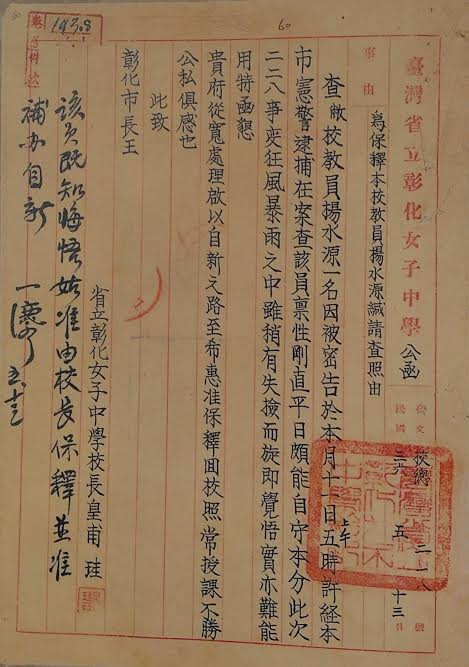 臺灣省立彰化女子中學公函
事由
為保釋本校教員楊水源緘請查照由
發文
校總
二一八
號
民國
五
十三
日
查敝校教員楊水源一名因被密告於本月十二日上午五時許経本
市憲警逮捕在案查該員禀性剛直平日頗能自守本分此次
二二八爭変狂風暴雨之中雖稍有失檢而旋即覺悟實亦難能
用特函懇
貴府從寬處理啟以自新之路至希惠准保釋囬校照常授課不勝
公私俱感也
此致
彰化市長王
省立彰化女子中學校長皇甫珪
該員既知悔悟姑准由校長保釋並准
補办自新
五.十三
19308
60